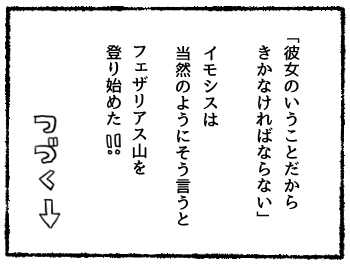 「彼女のいうことだから
きかなければならない」
イモシスは
当然のようにそう言うと
フェザリアス山を
登り始めた!!
つづく→